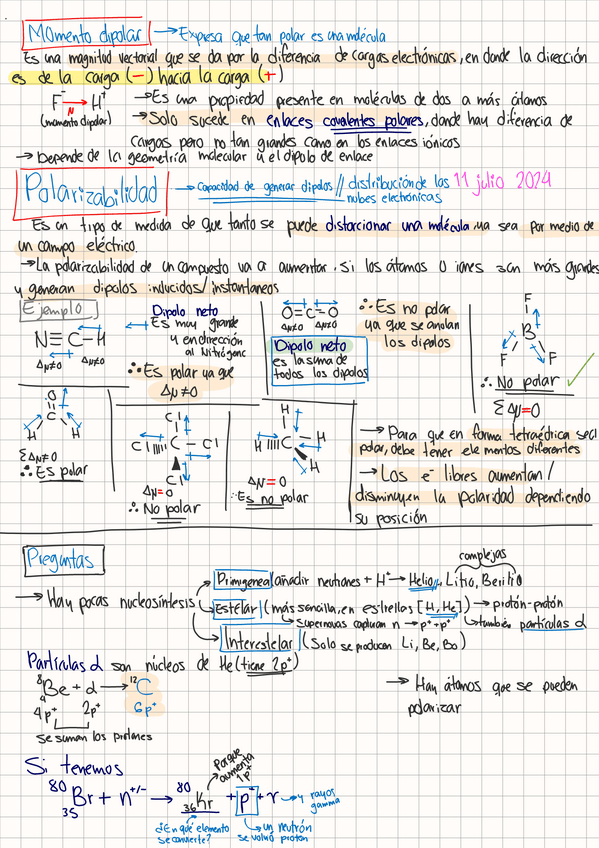 Momento dipolar → Expresa que tan polar es una mólecula
Es una magnitud vectorial que se da por la diferencia de cargas electrónicas, en donde la dirección
es de la carga (-) hacia la carga (+)
F⁻ → H⁺
μ
(momento dipolar)
→ Es una propiedad presente en moléculas de dos a más átomos
→ Solo sucede en enlaces covalentes polares, donde hay diferencia de
cargas pero no tan grandes como en los enlaces iónicos
→ Depende de la geometría molecular y el dipolo de enlace
Polarizabilidad → Capacidad de generar dipolos // distribución de las nubes electrónicas
11 julio 2024
Es un tipo de medida de que tanto se puede distorcionar una mólecula, ya sea por medio de
un campo eléctrico.
→ La polarizabilidad de un compuesto va a aumentar si los átomos o iones son más grandes
y generan dipolos inducidos/instantaneos
Ejemplo
N≡C-H
Δμ≠0 Δμ≠0
Dipolo neto
↳ Es muy grande
y en dirección
al Nitrógeno
∴ Es polar ya que
Δμ≠0
O=C=O
Δμ≠0 Δμ≠0
Dipolo neto
es la suma de
todos los dipolos
∴ Es no polar
ya que se anulan
los dipolos
F
B
F F
∴ No polar ✓
ΣΔμ=0
O
C
H H
ΣΔμ≠0
∴ Es polar
Cl
Cl C - Cl
Cl
Δμ=0
∴ No polar
H
H C - H
H
Δμ=0
∴ Es no polar
→ Para que en forma tetraédrica sea
polar, debe tener elementos diferentes
→ Los e⁻ libres aumentan /
disminuyen la polaridad dependiendo
su posición
Preguntas
complejas
→ Hay pocas nucleosíntesis
Primigenea (añadir neutrones + H⁺ → Helio, Litio, Berilio
Estelar (más sencilla, en estrellas [H, He]) → protón-protón
↳ Supernovas capturan n → p⁺+p⁺ ↳ también partículas α
Interestelar (Solo se producen Li, Be, Bo)
Partículas α son núcleos de He (tiene 2p⁺)
⁸₄Be + α → ¹²C
4p⁺ 2p⁺ 6p⁺
se suman los protones
→ Hay átomos que se pueden
polarizar
Si tenemos
Porque aumenta 1p⁺
⁸⁰₃₅Br + n⁺/⁻ → ⁸⁰₃₆Kr + p + γ → y rayos gamma
¿En qué elemento
se convierte?
↳ un neutrón
se volvió proton